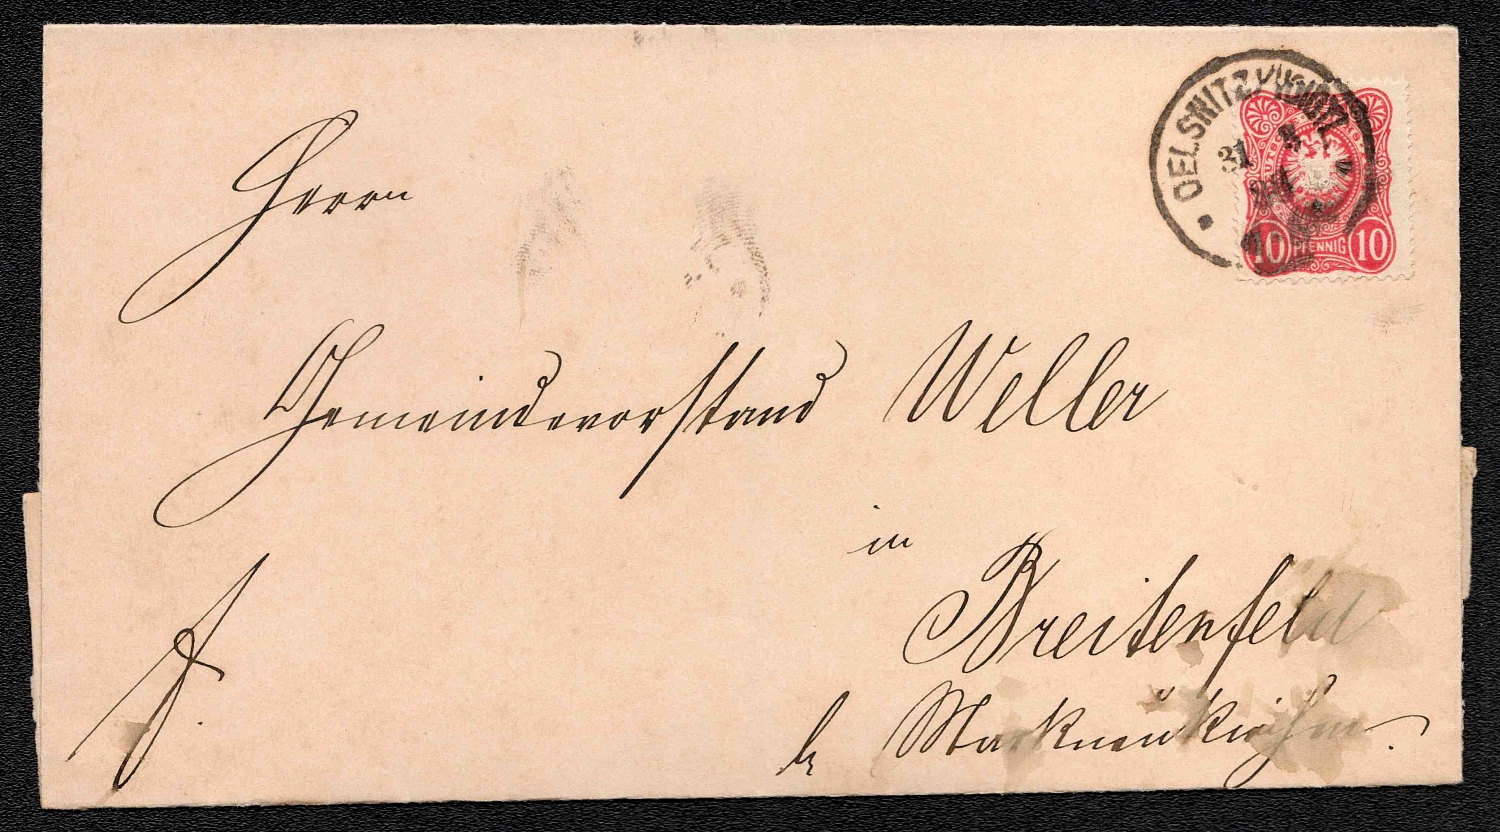 OELSNITZ i/VOIGTL.
31
10 PFENNIG 10
Herrn
Gemeindevorstand Weller
in
Breitenfeld
b. Markneukirchen.